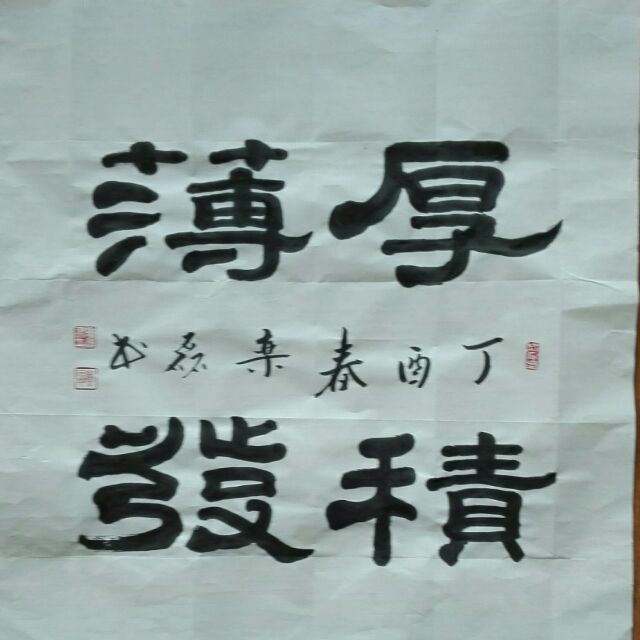 厚積
薄發
丁酉春
磊书